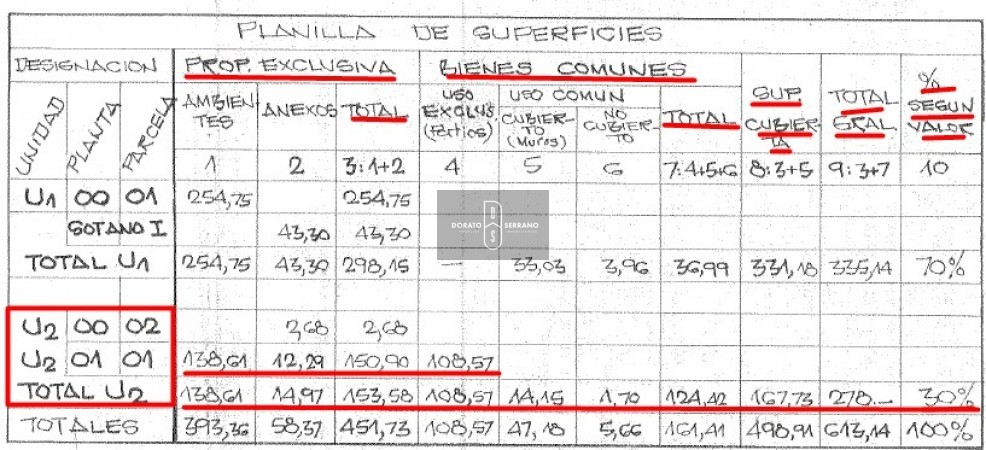 PLANILLA DE SUPERFICIES
DESIGNACION PROP. EXCLUSIVA BIENES COMUNES
UNIDAD PLANTA PARCELA AMBIENTES ANEXOS TOTAL USO EXCLUS. (Patios) USO COMUN CUBIERTO (Muros) NO CUBIERTO TOTAL SUP. CUBIERTA TOTAL GRAL. % SEGUN VALOR
1 2 3:1+2 4 5 6 7:4+5+6 8:3+5 9:3+7 10
U1 00 01 254,75 254,75
SOTANO I 43,30 43,30
DORATO DS SERRANO
TOTAL U1 254,75 43,30 298,15 — 33,03 3,96 36,99 331,18 335,14 70%
U2 00 02 2,68 2,68
U2 01 01 138,61 12,29 150,90 108,57
TOTAL U2 138,61 14,97 153,58 108,57 14,15 1,70 124,42 167,73 278.— 30%
TOTALES 393,36 58,37 451,73 108,57 47,18 5,66 161,41 498,91 613,14 100%